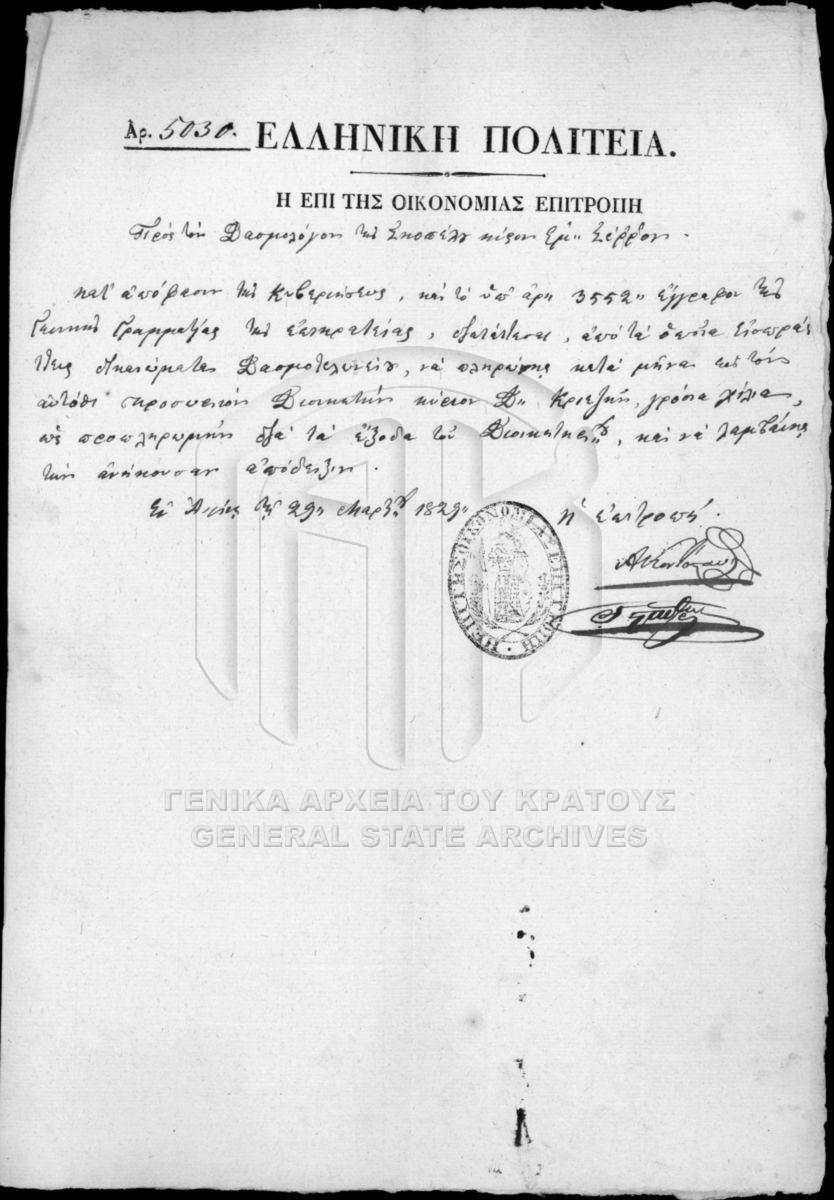 Ἀρ. 5030. ΕΛΛΗΝΙΚΗ ΠΟΛΙΤΕΙΑ.
Η ΕΠΙ ΤΗΣ ΟΙΚΟΝΟΜΙΑΣ ΕΠΙΤΡΟΠΗ
Πρὸς τὸν Δασμολόγον τῆς Σκοπέλου κύριον Ἐμ:
κατ' ἀπόφασιν τῆς Κυβερνήσεως, καὶ τὸ ὑπ' ἀρ: 3552 ἔγγραφον τῆς
Γενικῆς Γραμματείας τῆς ἐπικρατείας, διατάττεσαι, ἀπὸ τὰ ὁποῖα εἰσπράτ
τεις δικαιώματα Δασμοτελωνείου, νὰ πληρώνῃς κατὰ μῆνα εἰς τὸν
αὐτόθι προσωρινὸν Διοικητὴν κύριον Δ: Κριεζῆν, γρόσια χίλια,
ὡς προπληρωμὴν διὰ τὰ ἔξοδα τοῦ Διοικητηρίου, καὶ νὰ λαμβάνῃς
τὴν ἀνήκουσαν ἀπόδειξιν.
Ἐν Αἰγίνῃ τῇ 29 Μαρτίου 1829 Ἡ ἐπιτροπή.
Η ΕΠΙ ΤΗΣ ΟΙΚΟΝΟΜΙΑΣ ΕΠΙΤΡΟΠΗ
ΓΕΝΙΚΑ ΑΡΧΕΙΑ ΤΟΥ ΚΡΑΤΟΥΣ
GENERAL STATE ARCHIVES